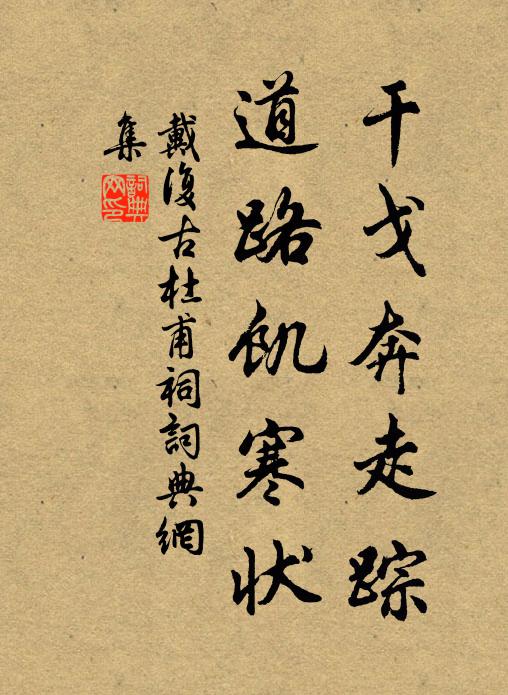 干戈奔走踪
道路飢寒状
戴復古杜甫祠詞典網
集
詞典
网印